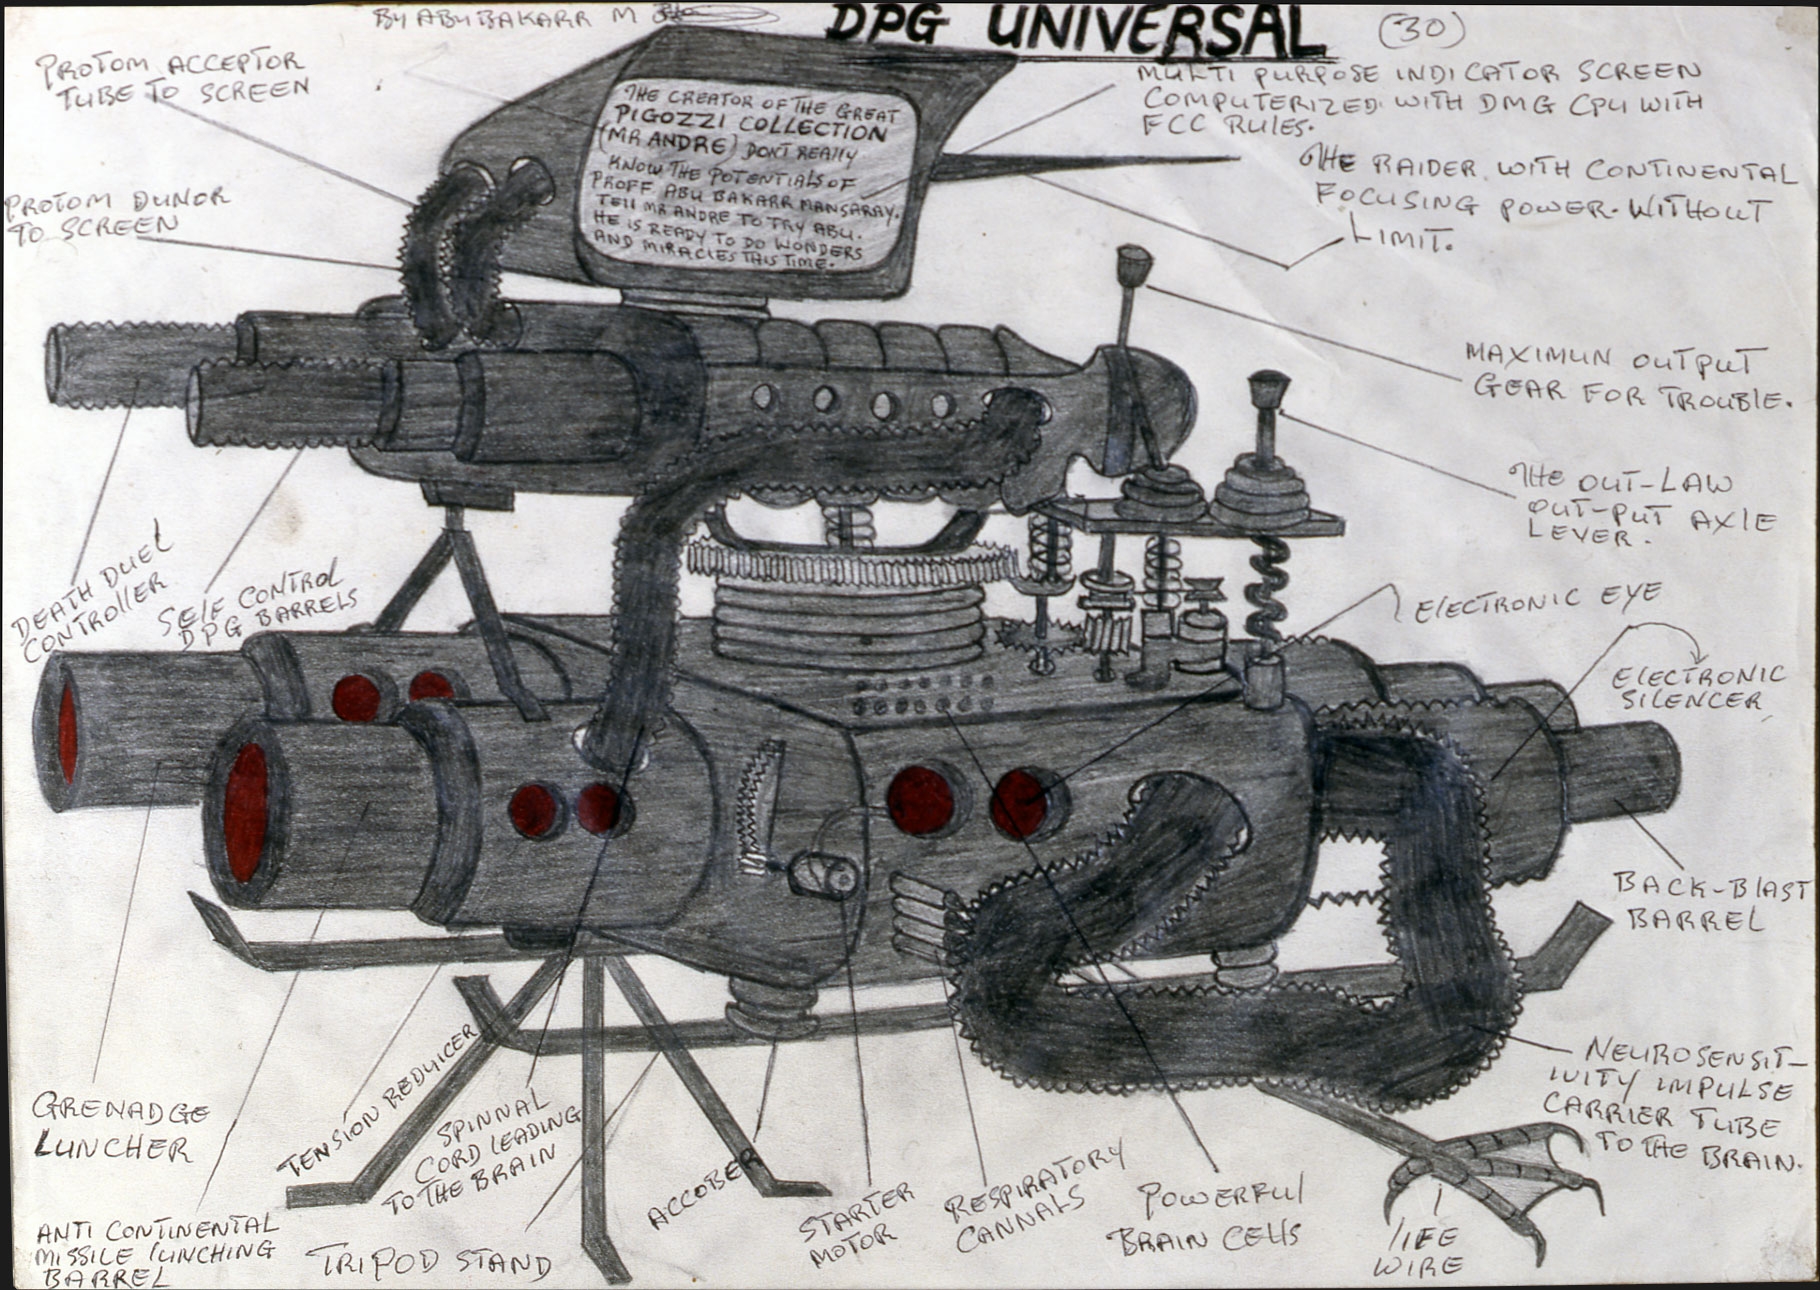 BY ABU BAKARR M
DPG UNIVERSAL
(30)
PROTOM ACCEPTOR
TUBE TO SCREEN
MULTI PURPOSE INDICATOR SCREEN
COMPUTERIZED. WITH DMG CPU WITH
FCC RULES.
THE CREATOR OF THE GREAT
PIGOZZI COLLECTION
(MR ANDRE) DON'T REALLY
KNOW THE POTENTIALS OF
PROFF. ABU BAKARR MANSARAY.
TELL MR ANDRE TO TRY ABU.
HE IS READY TO DO WONDERS
AND MIRACLES THIS TIME.
THE RAIDER. WITH CONTINENTAL
FOCUSING POWER. WITHOUT
LIMIT.
PROTOM DUNOR
TO SCREEN
MAXIMUN OUTPUT
GEAR FOR TROUBLE.
THE OUT-LAW
OUT-PUT AXLE
LEVER.
DEATH DUEL
CONTROLLER
SELF CONTROL
DPG BARRELS
ELECTRONIC EYE
ELECTRONIC
SILENCER
BACK-BLAST
BARREL
NEUROSENSIT-
IVITY IMPULSE
CARRIER TUBE
TO THE BRAIN.
GRENADGE
LUNCHER
ANTI CONTINENTAL
MISSILE LUNCHING
BARREL
TENSION REDUICER
SPINNAL
CORD LEADING
TO THE BRAIN
TRIPOD STAND
ACCOBER
STARTER
MOTOR
RESPIRATORY
CANNALS
POWERFUL
BRAIN CELLS
LIFE
WIRE